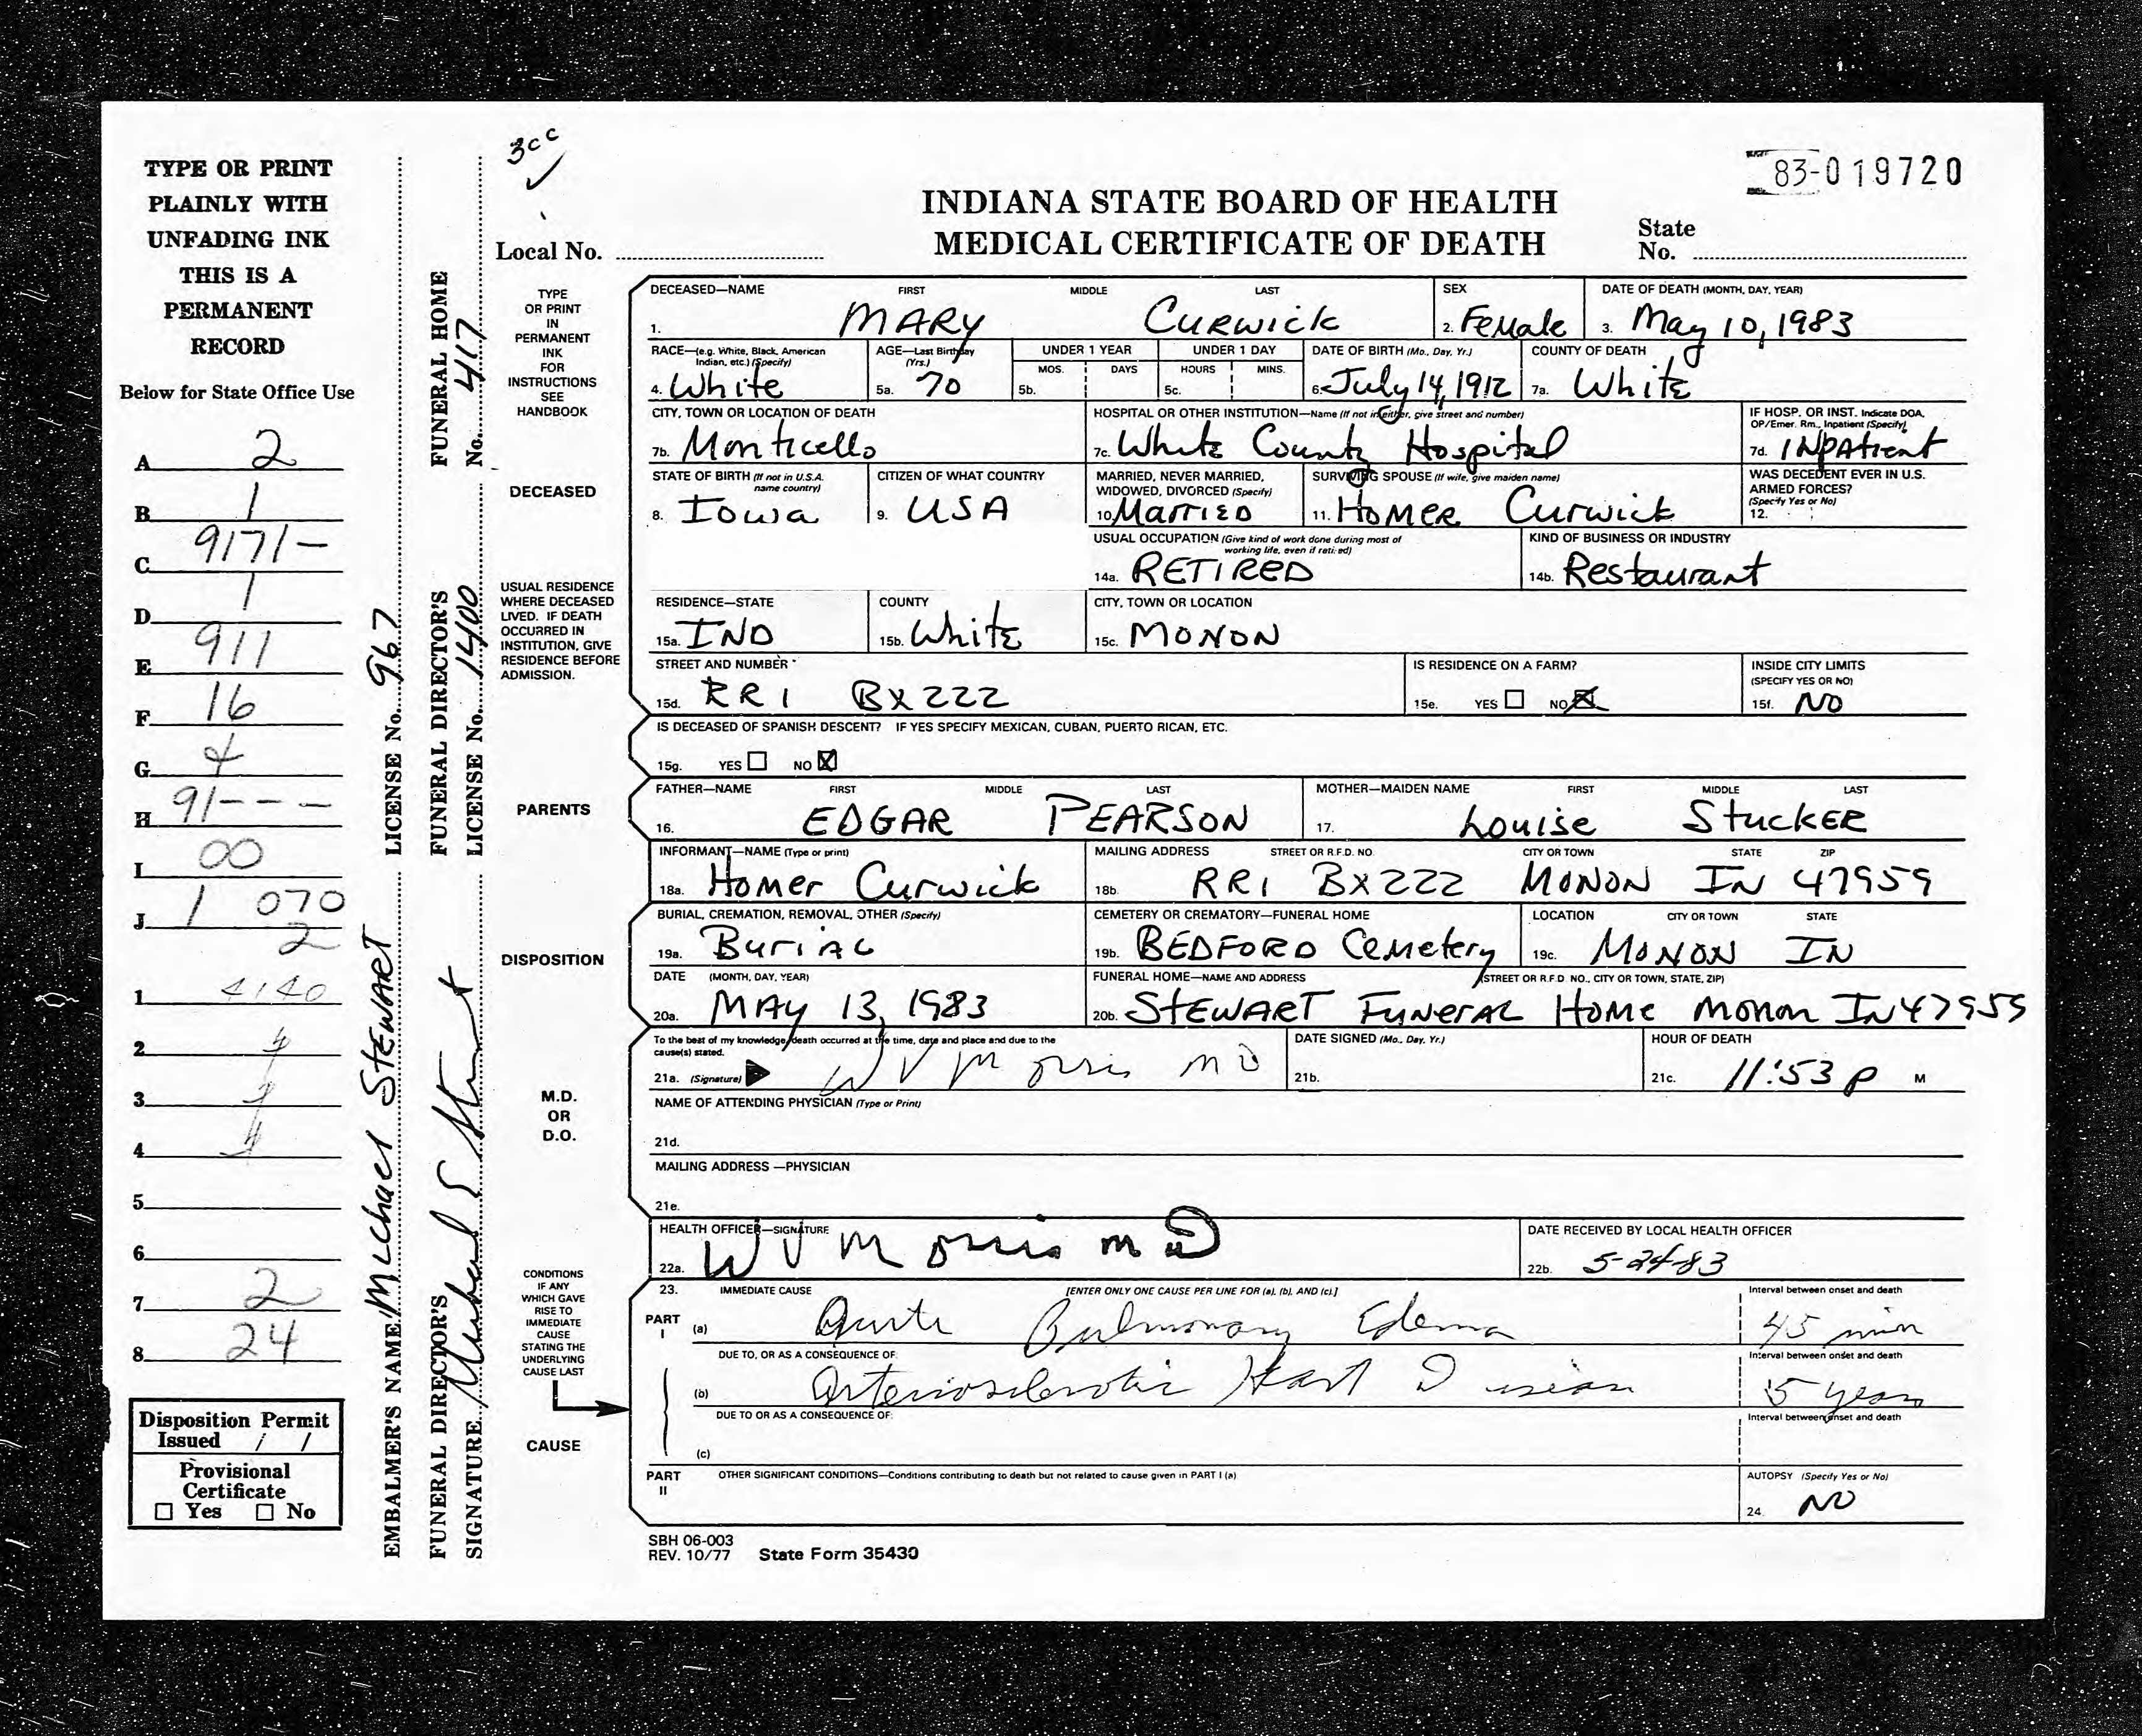 3cc
83-019720
INDIANA STATE BOARD OF HEALTH
MEDICAL CERTIFICATE OF DEATH
Local No.
State
No.
TYPE OR PRINT
PLAINLY WITH
UNFADING INK
THIS IS A
PERMANENT
RECORD
Below for State Office Use
A 2
B 1
C 9171-
D 1
E 911
F 16
G 4
H 91---
I 00
J 1 070
2
1 4140
2
3
4
5
6
7 2
8 24
Disposition Permit
Issued / /
Provisional
Certificate
☐ Yes ☐ No
EMBALMER'S NAME Michael STEWART LICENSE No. 967
FUNERAL DIRECTOR'S
SIGNATURE Michael S Stewart
FUNERAL DIRECTOR'S
LICENSE No. 1400
FUNERAL HOME
No. 417
TYPE
OR PRINT
IN
PERMANENT
INK
FOR
INSTRUCTIONS
SEE
HANDBOOK
DECEASED
DECEASED—NAME FIRST MIDDLE LAST
1. MARY CURWICK
SEX
2. Female
DATE OF DEATH (MONTH, DAY, YEAR)
3. May 10, 1983
RACE—(e.g. White, Black, American
Indian, etc.) (Specify)
4. White
AGE—Last Birthday
(Yrs.)
5a. 70
UNDER 1 YEAR
MOS. DAYS
5b.
UNDER 1 DAY
HOURS MINS.
5c.
DATE OF BIRTH (Mo., Day, Yr.)
6. July 14, 1912
COUNTY OF DEATH
7a. White
CITY, TOWN OR LOCATION OF DEATH
7b. Monticello
HOSPITAL OR OTHER INSTITUTION—Name (If not in either, give street and number)
7c. White County Hospital
IF HOSP. OR INST. Indicate DOA,
OP/Emer. Rm., Inpatient (Specify)
7d. INPAtient
STATE OF BIRTH (If not in U.S.A.
name country)
8. Iowa
CITIZEN OF WHAT COUNTRY
9. USA
MARRIED, NEVER MARRIED,
WIDOWED, DIVORCED (Specify)
10. Married
SURVIVING SPOUSE (If wife, give maiden name)
11. Homer Curwick
WAS DECEDENT EVER IN U.S.
ARMED FORCES?
(Specify Yes or No)
12.
USUAL OCCUPATION (Give kind of work done during most of
working life, even if retired)
14a. RETIRED
KIND OF BUSINESS OR INDUSTRY
14b. Restaurant
USUAL RESIDENCE
WHERE DECEASED
LIVED. IF DEATH
OCCURRED IN
INSTITUTION, GIVE
RESIDENCE BEFORE
ADMISSION.
RESIDENCE—STATE
15a. IND
COUNTY
15b. White
CITY, TOWN OR LOCATION
15c. MONON
STREET AND NUMBER
15d. RR1 BX222
IS RESIDENCE ON A FARM?
15e. YES ☐ NO ☒
INSIDE CITY LIMITS
(SPECIFY YES OR NO)
15f. NO
IS DECEASED OF SPANISH DESCENT? IF YES SPECIFY MEXICAN, CUBAN, PUERTO RICAN, ETC.
15g. YES ☐ NO ☒
PARENTS
FATHER—NAME FIRST MIDDLE LAST
16. EDGAR PEARSON
MOTHER—MAIDEN NAME FIRST MIDDLE LAST
17. Louise Stucker
INFORMANT—NAME (Type or print)
18a. Homer Curwick
MAILING ADDRESS STREET OR R.F.D. NO. CITY OR TOWN STATE ZIP
18b. RR1 BX222 MONON IN 47959
DISPOSITION
BURIAL, CREMATION, REMOVAL, OTHER (Specify)
19a. Burial
CEMETERY OR CREMATORY—FUNERAL HOME
19b. BEDFORD Cemetery
LOCATION CITY OR TOWN STATE
19c. MONON IN
DATE (MONTH, DAY, YEAR)
20a. MAY 13, 1983
FUNERAL HOME—NAME AND ADDRESS (STREET OR R.F.D NO., CITY OR TOWN, STATE, ZIP)
20b. STEWART Funeral Home Monon IN 47959
M.D.
OR
D.O.
To the best of my knowledge, death occurred at the time, date and place and due to the
cause(s) stated.
21a. (Signature) W V Morris MD
DATE SIGNED (Mo., Day, Yr.)
21b.
HOUR OF DEATH
21c. 11:53 P M
NAME OF ATTENDING PHYSICIAN (Type or Print)
21d.
MAILING ADDRESS —PHYSICIAN
21e.
HEALTH OFFICER—SIGNATURE
22a. W V Morris MD
DATE RECEIVED BY LOCAL HEALTH OFFICER
22b. 5-24-83
CONDITIONS
IF ANY
WHICH GAVE
RISE TO
IMMEDIATE
CAUSE
STATING THE
UNDERLYING
CAUSE LAST
CAUSE
23. IMMEDIATE CAUSE [ENTER ONLY ONE CAUSE PER LINE FOR (a), (b), AND (c).]
PART
I
(a) Acute Pulmonary Edema
Interval between onset and death
45 min
DUE TO, OR AS A CONSEQUENCE OF:
(b) Arteriosclerotic Heart Disease
Interval between onset and death
5 years
DUE TO OR AS A CONSEQUENCE OF:
(c)
Interval between onset and death
PART
II
OTHER SIGNIFICANT CONDITIONS—Conditions contributing to death but not related to cause given in PART I (a)
AUTOPSY (Specify Yes or No)
24. NO
SBH 06-003
REV. 10/77 State Form 35430